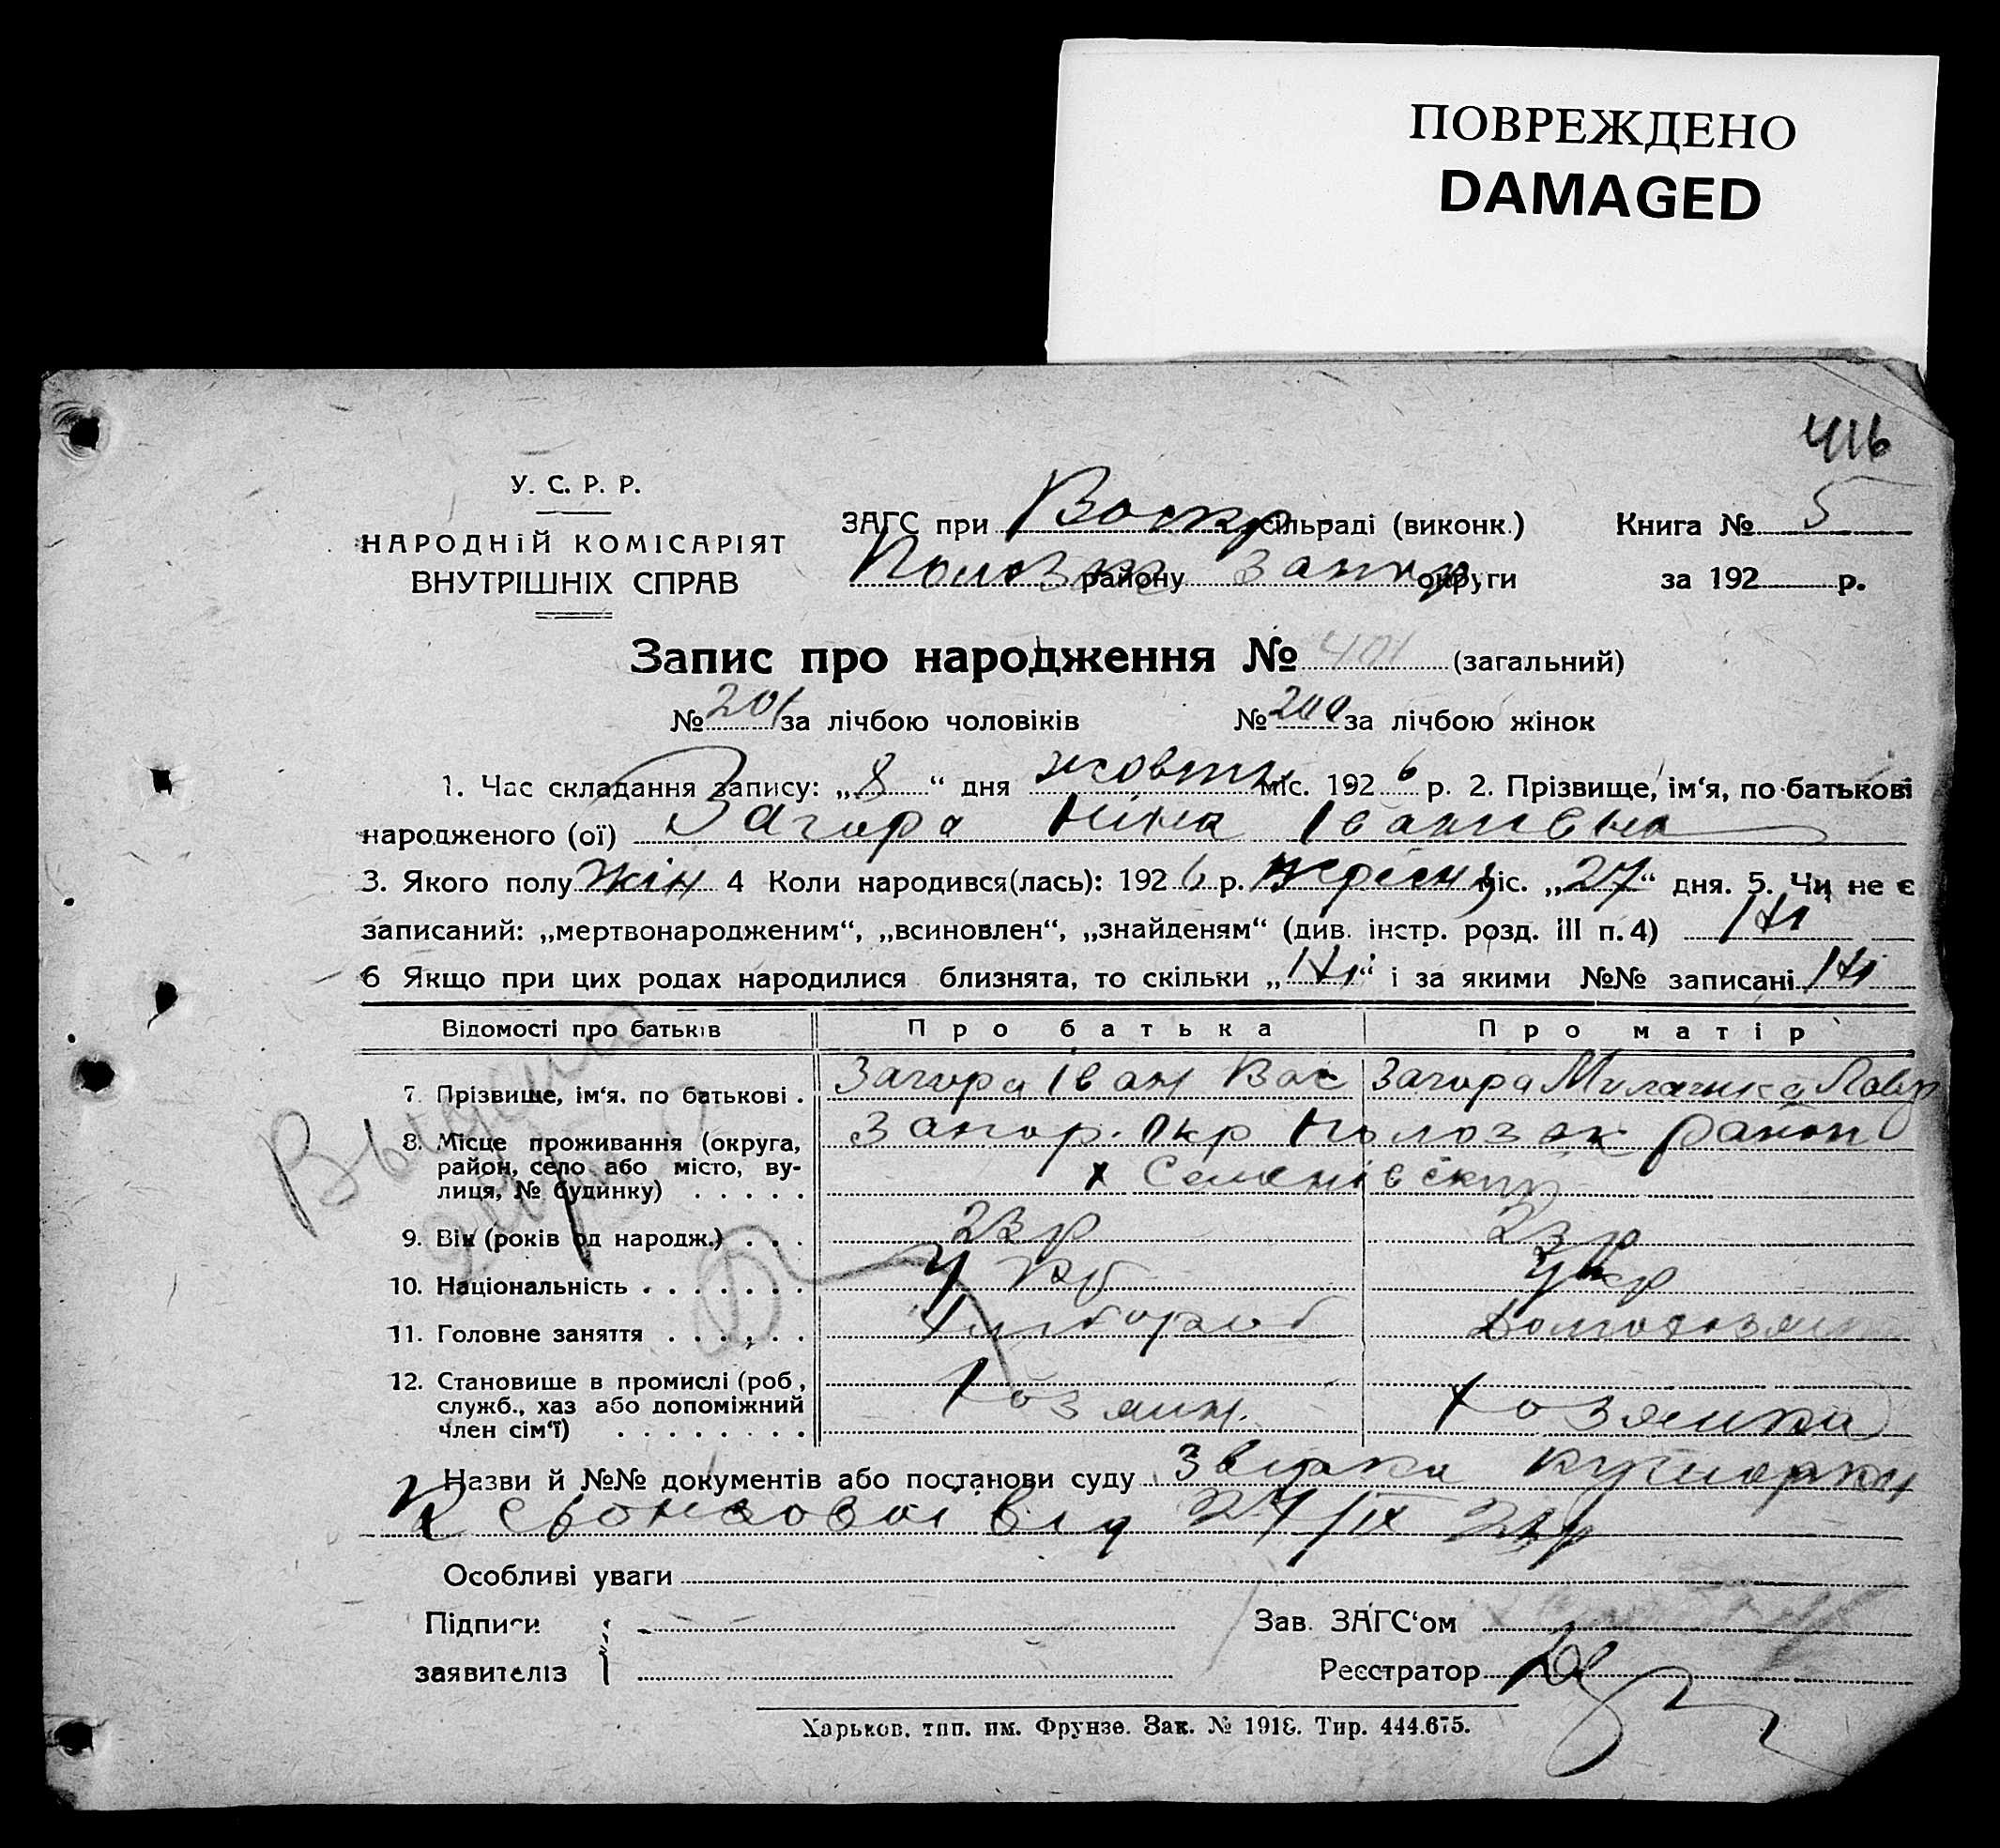 ПОВРЕЖДЕНО
DAMAGED
416
У. С. Р. Р.
НАРОДНІЙ КОМІСАРІЯТ
ВНУТРІШНІХ СПРАВ
ЗАГС при Воскр сільраді (виконк.)
району Запор округи
Книга № 5
за 192 р.
Запис про народження № 401 (загальний)
№ 201 за лічбою чоловіків № 200 за лічбою жінок
1. Час складання запису: „8“ дня жовтн міс. 1926 р. 2. Прізвище, ім‘я, по батькові
народженого (ої) Загора Ніна Іванівна
3. Якого полу жін 4 Коли народився(лась): 1926 р. вересня міс. „27“ дня. 5. Чи не є
записаний: „мертвонародженим“, „всиновлен“, „знайденям“ (див. інстр. розд. III п. 4) Ні
6 Якщо при цих родах народилися близнята, то скільки „Ні“ і за якими №№ записані Ні
Відомості про батьків Про батька Про матір
7. Прізвище, ім‘я, по батькові . Загора Іван Вас Загора
8. Місце проживання (округа, Запор. окр район
район, село або місто, ву- х Семенівський
лиця, № будинку) . . . . .
9. Вік (років од народж.) . . . 23 р 23 р
10. Національність . . . . . . . Укр Укр
11. Головне заняття . . . . . . Хлібороб
12. Становище в промислі (роб., Хозяин. Хозяйка
служб., хаз або допоміжний
член сім‘ї) . . . . . . . .
Назви й №№ документів або постанови суду
від 27/IX 26р
Особливі уваги
Підписи
заявителів
Зав. ЗАГС‘ом
Реєстратор
Харьков, тип. им. Фрунзе. Зак. № 1918. Тир. 444.675.